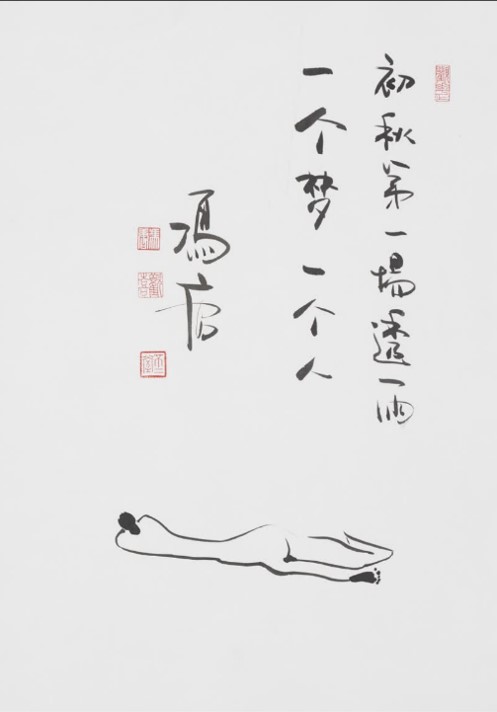 初秋第一場透雨
一个梦一个人
馮唐